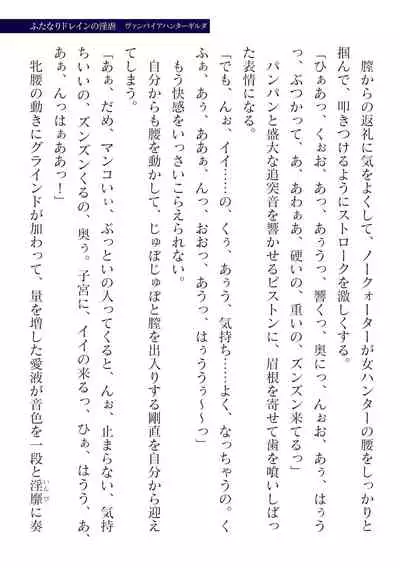 ふたなりドレインの淫虐　ヴァンパイアハンターギルダ
膣からの返礼に気をよくして、ノークォーターが女ハンターの腰をしっかりと
掴んで、叩きつけるようにストロークを激しくする。
「ひぁあっ、くぉお、あっ、あぅうっ、響くっ、奥にっ、んぉお、あぅ、はぅう
っ、ぶつかって、あ、あわぁあ、硬いの、重いの、ズンズン来てるっ」
パンパンと盛大な追突音を響かせるピストンに、眉根を寄せて歯を喰いしばっ
た表情になる。
「でも、んぉ、イイ……の、くぅ、あぅう、気持ち……よく、なっちゃうの。く
ふぁ、あぅ、ああぁ、んっ、おおっ、あうっ、はぅううぅ〜〜っ」
もう快感をいっさいこらえられない。
自分からも腰を動かして、じゅぽじゅぽと膣を出入りする剛直を自分から迎え
てしまう。
「あぁ、だめ、マンコいぃ、ぶっといの入ってくると、んぉ、止まらない、気持
ちいいの、ズンズンくるの、奥ぅ。子宮に、イイの来るっ、ひぁ、はうう、あ、
あぁ、んっはぁああっ！」
牝腰の動きにグラインドが加わって、量を増した愛液が音色を一段と淫靡に奏
いんび